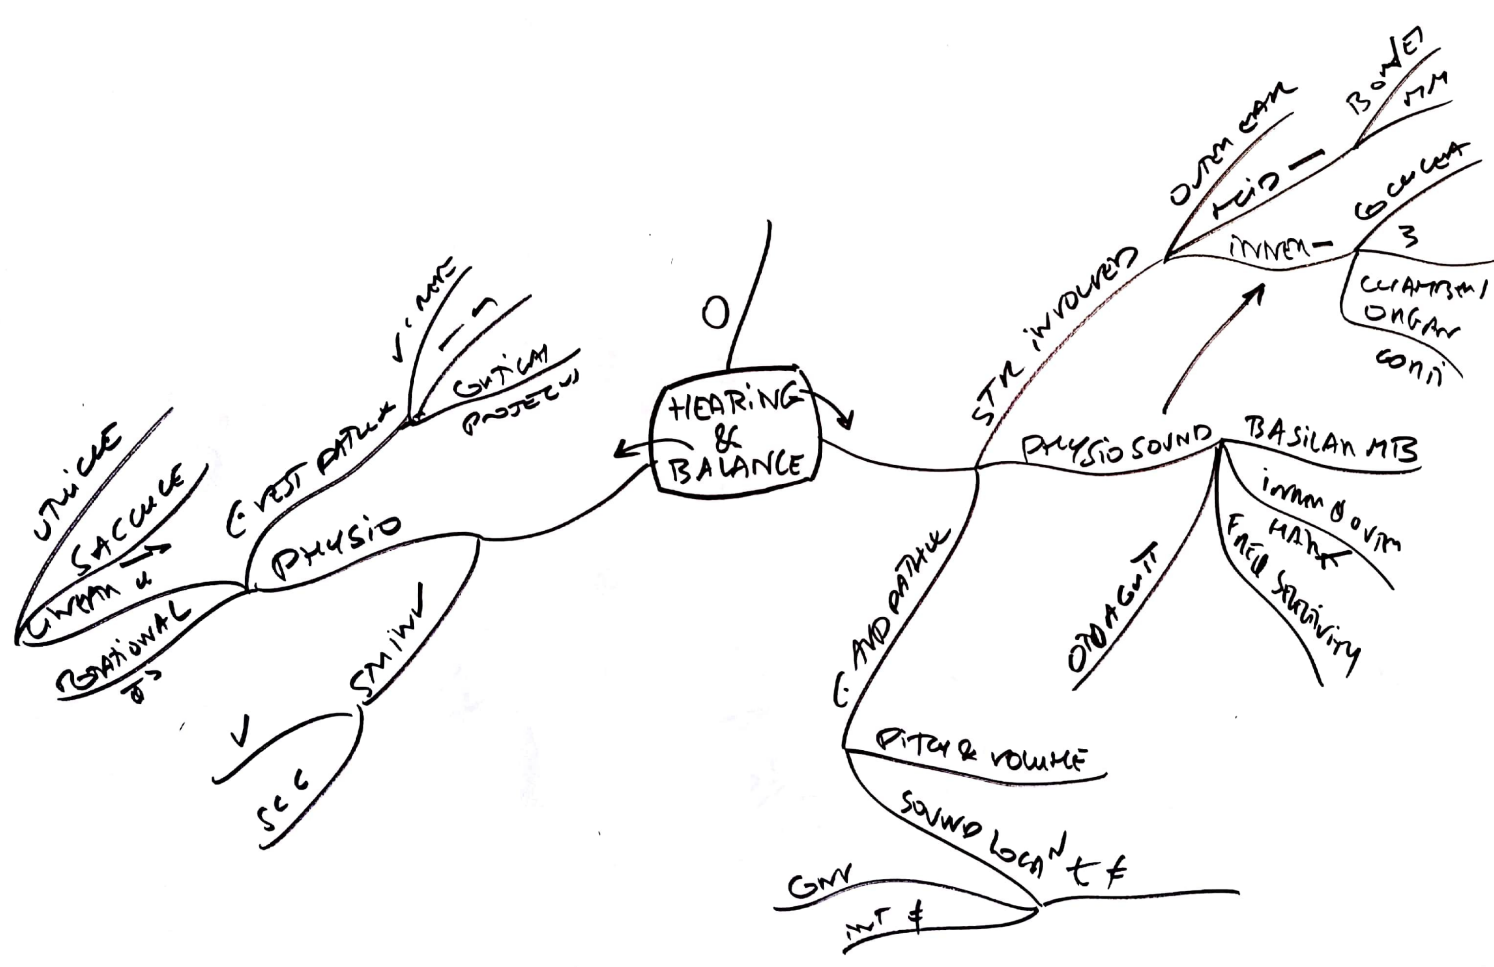 O
HEARING
&
BALANCE
STR INVOLVED
OUTER EAR
MID —
BONES
MM
INNER —
COCHLEA
3
CHAMBERS
ORGAN
CORTI
PHYSIO SOUND
BASILAR MB
INNER & OUTER
HAIR
FREQ SELECTIVITY
C. AUD PATHW
PITCH & VOLUME
SOUND LOCAN
INT ≠
PHYSIO
C. VEST PATHW
CORTICAL
PROJECNS
UTRICLE
SACCULE
LINEAR
ROTATIONAL
STR INV
V
SCC